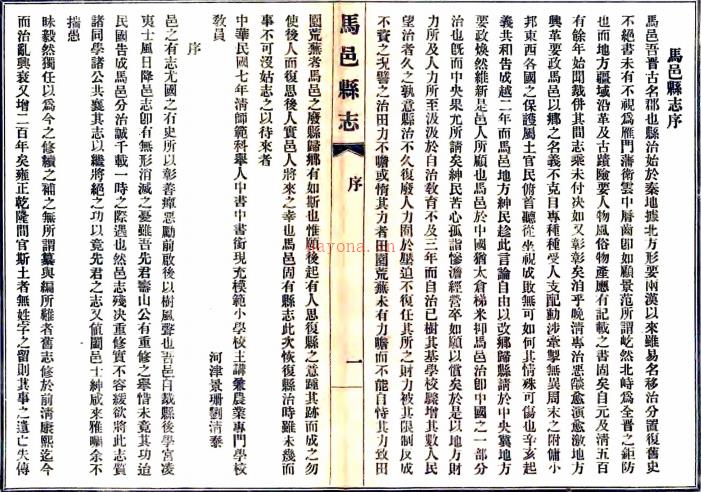 馬邑縣志序
馬邑吾晉古名郡也縣治始於秦地據北方形要兩漢以來雖易名移治分置復舊史
不絕書未有不視爲雁門藩衛雲中脣齒卽如顧景范所謂屹然北峙爲全晉之鉅防
也而地方疆域沿革及古蹟險要人物風俗物產應有記載之書固矣自元及淸五百
有餘年始聞裁併其間志乘未付决如又彰彰矣洎乎晚淸專治惡燄愈演愈激地方
興革要政馬邑以鄉之名義不克自專種種受人支配動涉牽掣無異周末之附傭小
邦東西各國之保護屬土官民俯首聽從坐視成敗無可如何其情殊可傷也辛亥起
義共和告成越二年而馬邑地方紳民趁此言論自由以改鄉歸縣請於中央冀地方
要政煥然維新是邑人所顧也馬邑於中國猶太倉梯米抑馬邑治卽中國之一部分
治也旣而中央果允所請矣紳民苦心孤詣慘澹經營卒如願以償矣於是以地方財
力所及人力所至汲汲於自治敎育不及三年而自治已樹其基學校驟增其數人民
望治者久之孰意縣治不久復廢人力囿於壓迫不復任其所之財力被其限制反成
不資之况譬之治田力不贍或惰其力者田園荒蕪未有力贍而不能自恃其力致田
園荒蕪者馬邑之廢縣歸鄉有如斯也惟願後起有人思復縣之意踵其跡而成之勿
使後人而復思後人實邑人將來之幸也馬邑固有縣志此次恢復縣治時雖未幾而
事不可沒姑志之以待來者
中華民國七年淸師範科舉人中書中書銜現充模範小學校主講兼農業專門學校
敎員
河津景珊劉淸泰
序
邑之有志尤國之有史所以彰善癉惡勵前啟後以樹風聲也吾邑自裁縣後學宮凌
夷士風日降邑志卽有無形消滅之憂雖吾先君壽山公有重修之舉惜未竟其功迨
民國告成馬邑分治誠千載一時之際遇也然邑志殘决重修實不容緩欲將此志質
諸同學諸公共襄其志以繼將絕之功以竟先君之志又値闔邑士紳咸來雅囑余不
揣愚
昧毅然獨任以爲今之修續之補之無所謂纂與編所難者舊志修於前淸康熙迄今
而治亂興衰又增二百年矣雍正乾隆間官斯土者無姓字之留則其事之遺亡失傳
馬邑縣志
序
一
bayona.cn